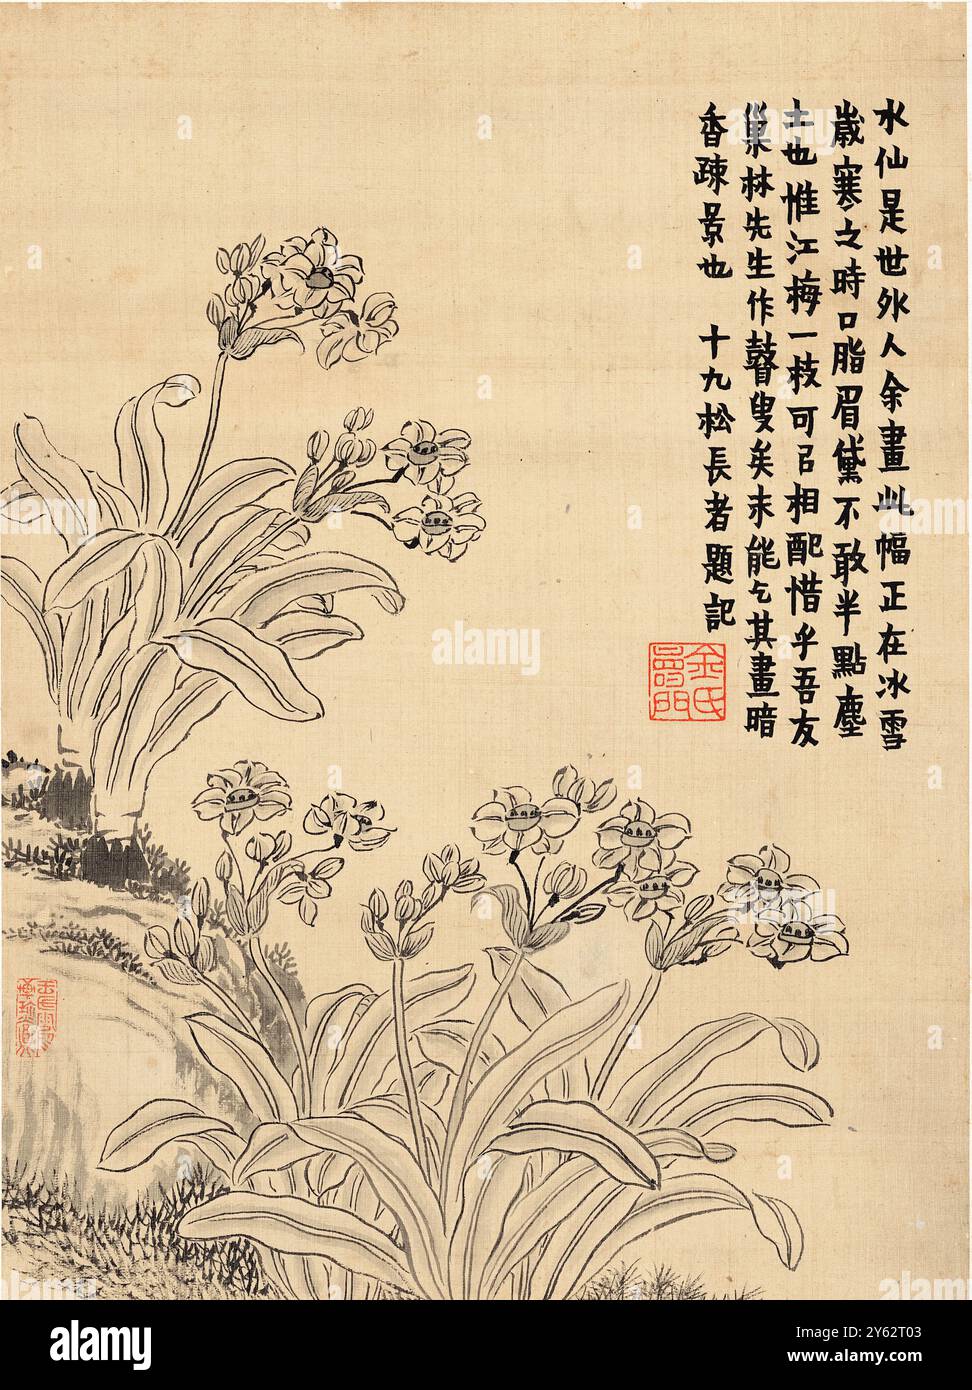 水仙是世外人余畫此幅正在冰雪
歲寒之時口脂眉黛不敢半點塵
土也惟江梅一枝可㠯相配惜乎吾友
巢林先生作瞽叟矣未能乞其畫暗
香疎景也 十九松長者題記
金氏
壽門
alamy
Image ID: 2Y62T03
www.alamy.com